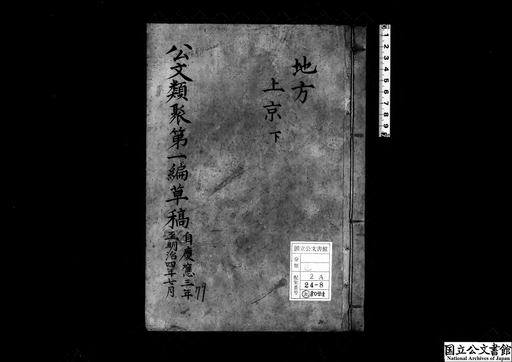 地方
上京 下
公文類聚第一編草稿
自慶應三年
至明治四年七月
77
国立公文書館
分類
配架番号
2A
24-8
国立公文書館
National Archives of Japan
1 2 3 4 5 6 7 8 9